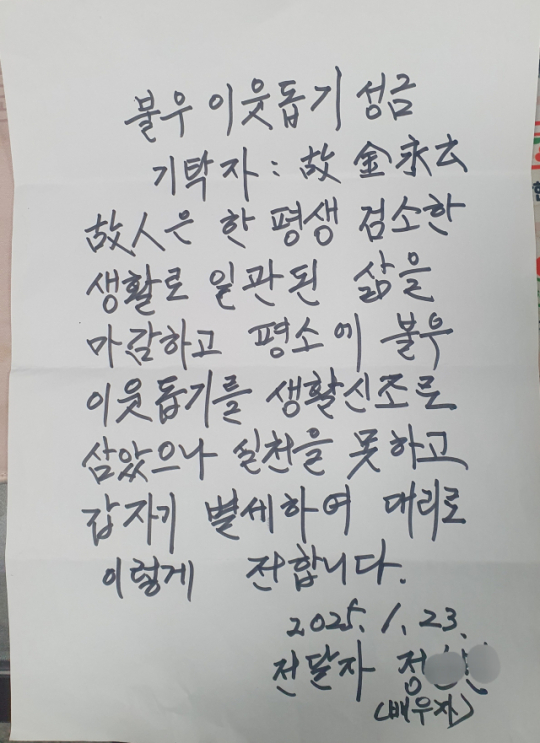 불우 이웃돕기 성금
기탁자 : 故 金永玄
故人은 한 평생 검소한
생활로 일관된 삶을
마감하고 평소에 불우
이웃돕기를 생활신조로
삼았으나 실천을 못하고
갑자기 별세하여 대리로
이렇게 전합니다.
2025. 1. 23.
전달자 정
(배우자)